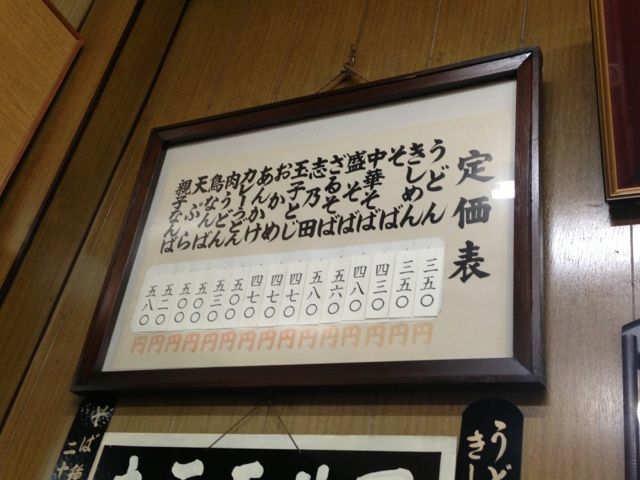 定価表
うどん 三五〇円
きしめん 三五〇円
そば 四三〇円
中華そば 四八〇円
盛そば 五六〇円
ざるそば 五八〇円
志乃田 四七〇円
玉子とじ 四七〇円
おかめ 四七〇円
あんかけ 五〇〇円
カレーうどん 五三〇円
肉うどん 五〇〇円
鳥なんば 五〇〇円
天ぷら 五二〇円
親子なんば 五八〇円
うど
きし
そば
二十